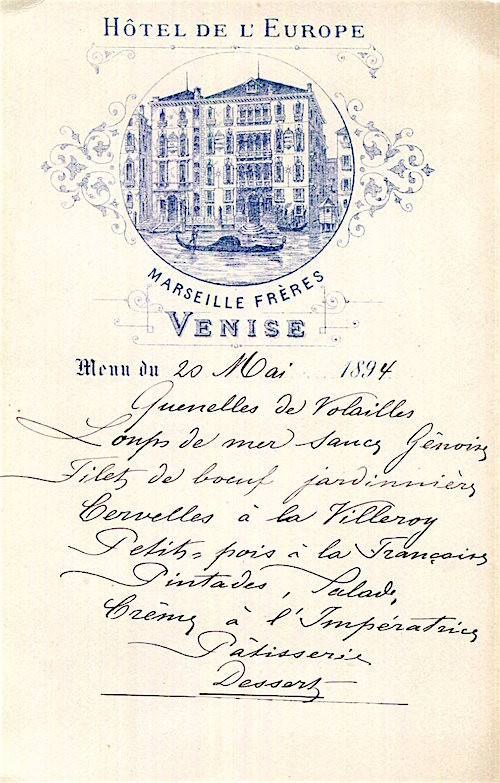 HÔTEL DE L'EUROPE
MARSEILLE FRÈRES
VENISE
Menu du 20 Mai 1894
Quenelles de Volailles
Loups de mer sauce Génoise
Filet de boeuf jardinnière
Cervelles à la Villeroy
Petits=pois à la Française
Pintades, Salade,
Crème à l'Impératrice
Pâtisserie
Dessert